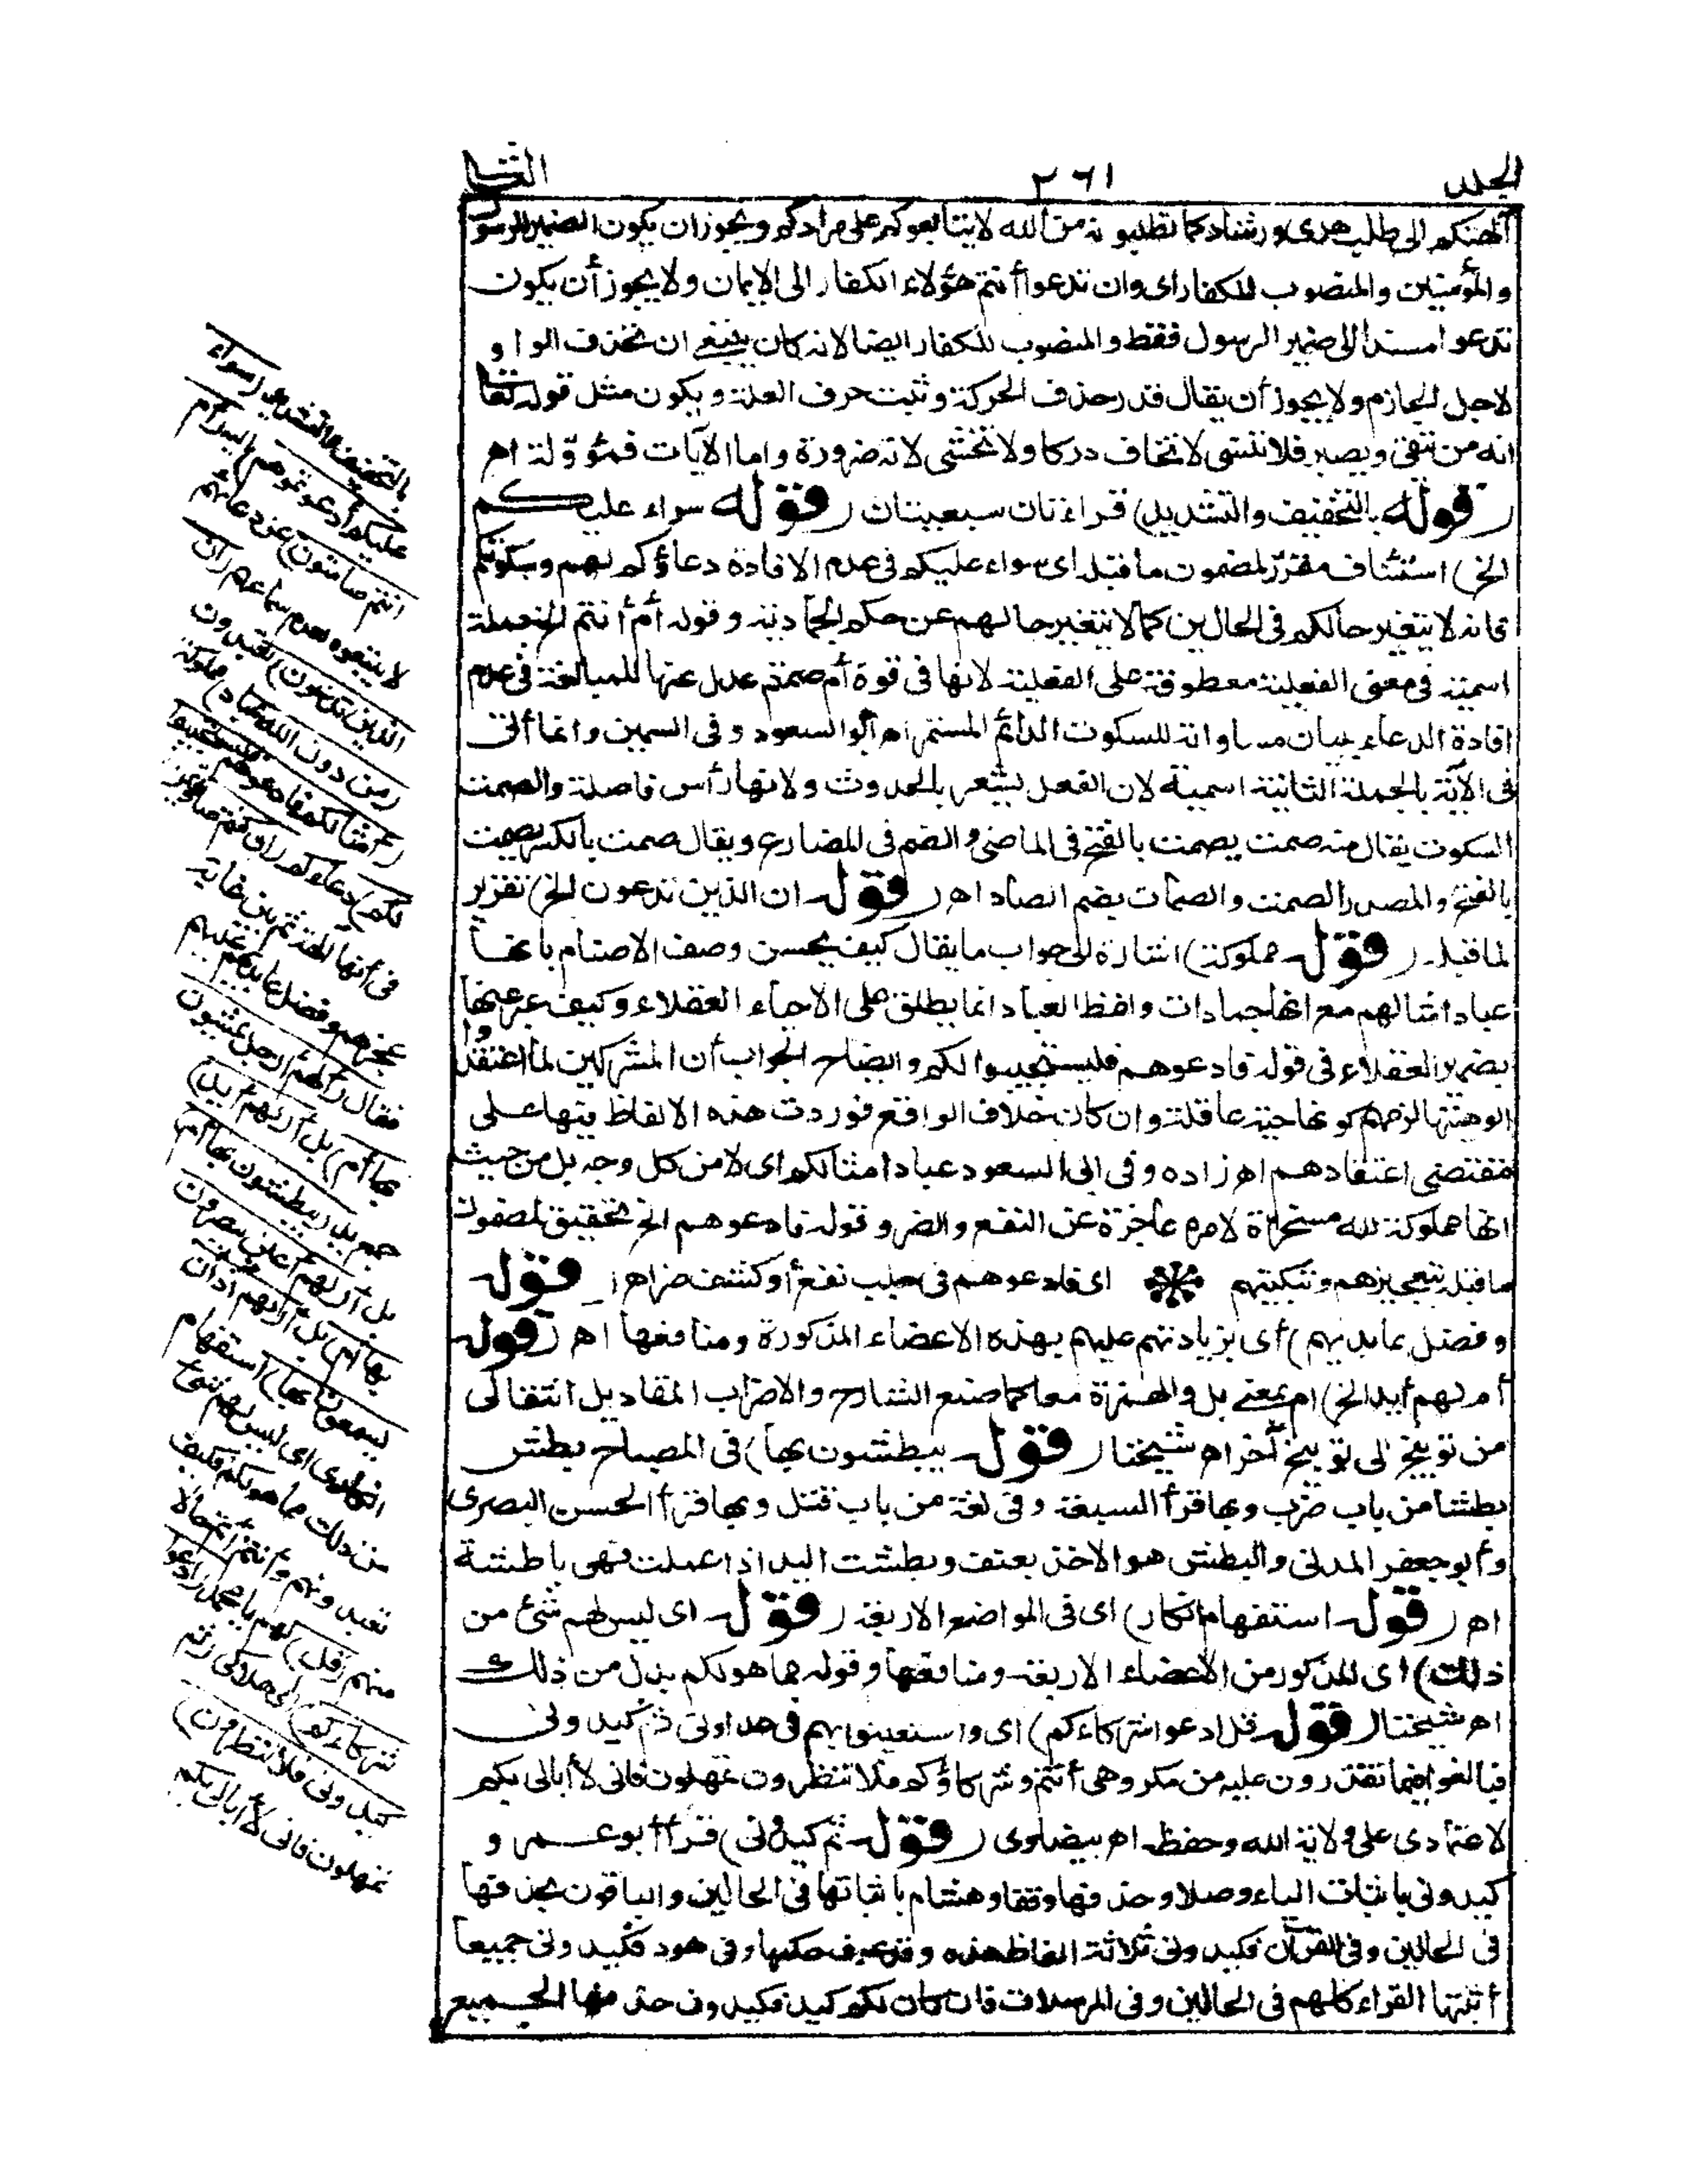 الجلد ٢٦١ الثانى
آلهتكم الى طلب هدى ورشاد كما تطلبونه من الله لا يتابعوكم على مرادكم ويجوز ان يكون الضمير للرسول
والمؤمنين والمنصوب للكفار اى وان تدعوا أنتم هؤلاء الكفار الى الايمان ولا يجوز أن يكون
تدعوا مسندا الى ضمير الرسول فقط والمنصوب للكفار ايضا لانه كان ينبغى ان تحذف الواو
لاجل الجازم ولا يجوز أن يقال قدر حذف الحركة وثبت حرف العلة ويكون مثل قوله تعالى
انه من يتقى ويصبر فلا تنسى لا تخاف دركا ولا تخشى لانه ضرورة واما الآيات فمؤوّلة اه
(قوله بالتخفيف والتشديد) قراءتان سبعيتان (قوله سواء عليكم
الخ) استئناف مقرّر لمضمون ما قبله اى سواء عليكم فى عدم الافادة دعاؤكم لهم وسكوتكم
فانه لا يتغير حالكم فى الحالين كما لا يتغير حالهم عن حكم الجمادية وقوله أم أنتم الخ جملة
اسمية فى معنى الفعلية معطوفة على الفعلية لانها فى قوة أم صمتم عدل عنها للمبالغة فى عدم
افادة الدعاء ببيان مساواته للسكوت الدائم المستمر اه أبو السعود وفى السمين وانما أتى
فى الآية بالجملة الثانية اسمية لان الفعل يشعر بالحدوث ولانها رأس فاصلة والصمت
السكوت يقال منه صمت يصمت بالفتح فى الماضى والضم فى المضارع ويقال صمت بالكسر يصمت
بالفتح والمصدر الصمت والصمات بضم الصاد اه (قوله ان الذين تدعون الخ) تقرير
لما قبله (قوله مملوكة) اشارة الى جواب ما يقال كيف يحسن وصف الاصنام بانها
عباد امثالهم مع انها جمادات ولفظ العباد انما يطلق على الاحياء العقلاء وكيف عبر عنها
بضمير العقلاء فى قوله فادعوهم فليستجيبوا لكم وايضاح الجواب أن المشركين لما اعتقدوا
الوهيتها لزمهم كونها حية عاقلة وان كان خلاف الواقع فوردت هذه الالفاظ فيها على
مقتضى اعتقادهم اه زاده وفى ابى السعود عبادا مثالكم اى لا من كل وجه بل من حيث
انها مملوكة لله مسخرة لامره عاجزة عن النفع والضر وقوله فادعوهم الخ تحقيق لمضمون
ما قبله بتعجيزهم وتبكيتهم اى فادعوهم فى جلب نفع أو كشف ضر اه (قوله
وفضل عابديهم) أى بزيادتهم عليهم بهذه الاعضاء المذكورة ومنافعها اه (قوله
أم لهم أيد الخ) ام بمعنى بل والهمزة معا كما صنع الشارح والاضراب المفاد ببل انتقالى
من توبيخ الى توبيخ آخر اه شيخنا (قوله يبطشون بها) فى المصباح بطش
بطشا من باب ضرب وبها قرأ السبعة وفى لغة من باب قتل وبها قرأ الحسن البصرى
وأبو جعفر المدنى والبطش هو الاخذ بعنف وبطشت اليد اذا عملت فهى باطشة
اه (قوله استفهام انكار) اى فى المواضع الاربعة (قوله اى ليس لهم شئ من
ذلك) اى المذكور من الاعضاء الاربعة ومنافعها وقوله مما هو لكم بدل من ذلك
اه شيخنا (قوله قل ادعوا شركاءكم) اى واستعينوا بهم فى عداوتى ثم كيدونى
فبالغوا فيما تقدرون عليه من مكروهى أنتم وشركاؤكم فلا تنظرون تمهلون فانى لا أبالى بكم
لاعتمادى على ولاية الله وحفظه اه بيضاوى (قوله ثم كيدونى) قرأ أبو عمرو
كيدونى باثبات الياء وصلا وحذفها وقفا وهشام باثباتها فى الحالين والباقون بحذفها
فى الحالين وفى القرآن فكيدونى ثلاثة الفاظ هذه وقد عرف حكمها وفى هود فكيدونى جميعا
أثبتها القراء كلهم فى الحالين وفى المرسلات فان كان لكم كيد فكيدون حذفها الجميع
بالتخفيف والتشديد (سواء
عليكم أدعوتموهم) اليه (أم
انتم صامتون) عن دعائهم
لا يتبعوه لعدم سماعهم (ان
الذين تدعون) تعبدون
(من دون الله عباد) مملوكة
(أمثالكم فادعوهم فليستجيبوا
لكم) دعاءكم (ان كنتم صادقين)
فى أنها آلهة ثم بين غاية
عجزهم وفضل عابديهم عليهم
فقال (ألهم أرجل يمشون
بها أم) بل أ (لهم أيد)
جمع يد (يبطشون بها أم)
بل أ (لهم أعين يبصرون
بها أم) بل أ (لهم آذان
يسمعون بها) استفهام
انكارى اى ليس لهم شئ
من ذلك مما هو لكم فكيف
تعبدونهم وأنتم أتم حالا
منهم (قل) لهم يا محمد (ادعوا
شركاءكم) الى هلاكى (ثم
كيدونى فلا تنظرون)
تمهلون فانى لا أبالى بكم